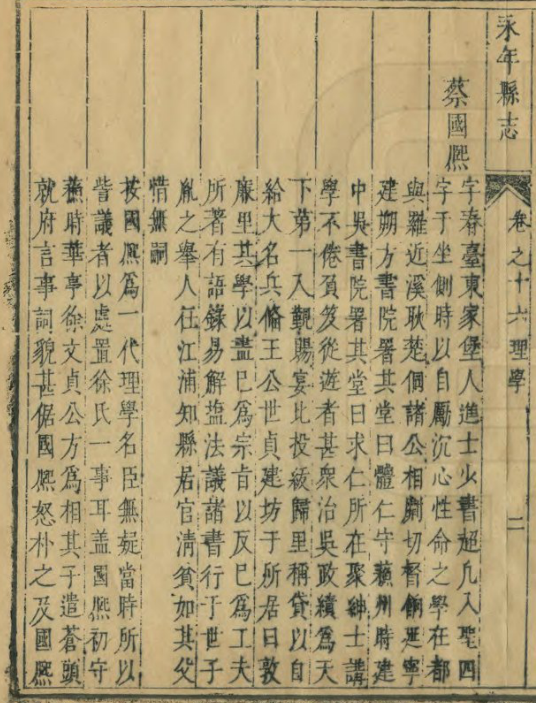 永年縣志
卷之十六理學
二
蔡國熈
字春臺東家堡人進士少書超凡入聖四
字于坐側時以自勵沉心性命之學在都
與羅近溪耿楚侗諸公相劘切督餉延寧
建朔方書院署其堂曰體仁守蘇州時建
中吳書院署其堂曰求仁所在聚紳士講
學不倦負笈從遊者甚衆治吳政績爲天
下第一入覲賜宴比投紱歸里稱貸以自
給大名兵備王公世貞建坊于所居曰敦
厐里其學以盡已爲宗旨以反已爲工夫
所著有語錄易解塩法議諸書行于世子
胤之舉人任江浦知縣居官清貧如其父
惜無嗣
按國熈爲一代理學名臣無疑當時所以
訾議者以處置徐氏一事耳盖國熈初守
蘇時華亭徐文貞公方爲相其子遣蒼頭
就府言事詞貌甚倨國熈怒朴之及國熈